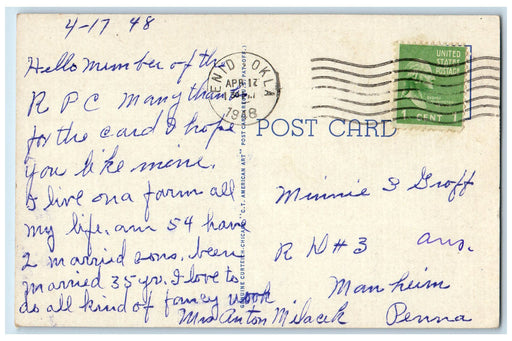 4-17 48
Hello Member of the
R P C Many thanks
for the card I hope
you like mine.
I live on a farm all
my life. am 54 have
2 married sons. been
married 35 yr. I love to
do all kind of fancy work
Mrs Anton Milacek
ENID OKLA
APR 17
1948
UNITED
STATES
POSTAGE
1 CENT 1
POST CARD
GENUINE CURTEICH-CHICAGO "C.T. AMERICAN ART" POST CARD
Minnie S Groff
R D # 3 ans.
Manheim
Penna